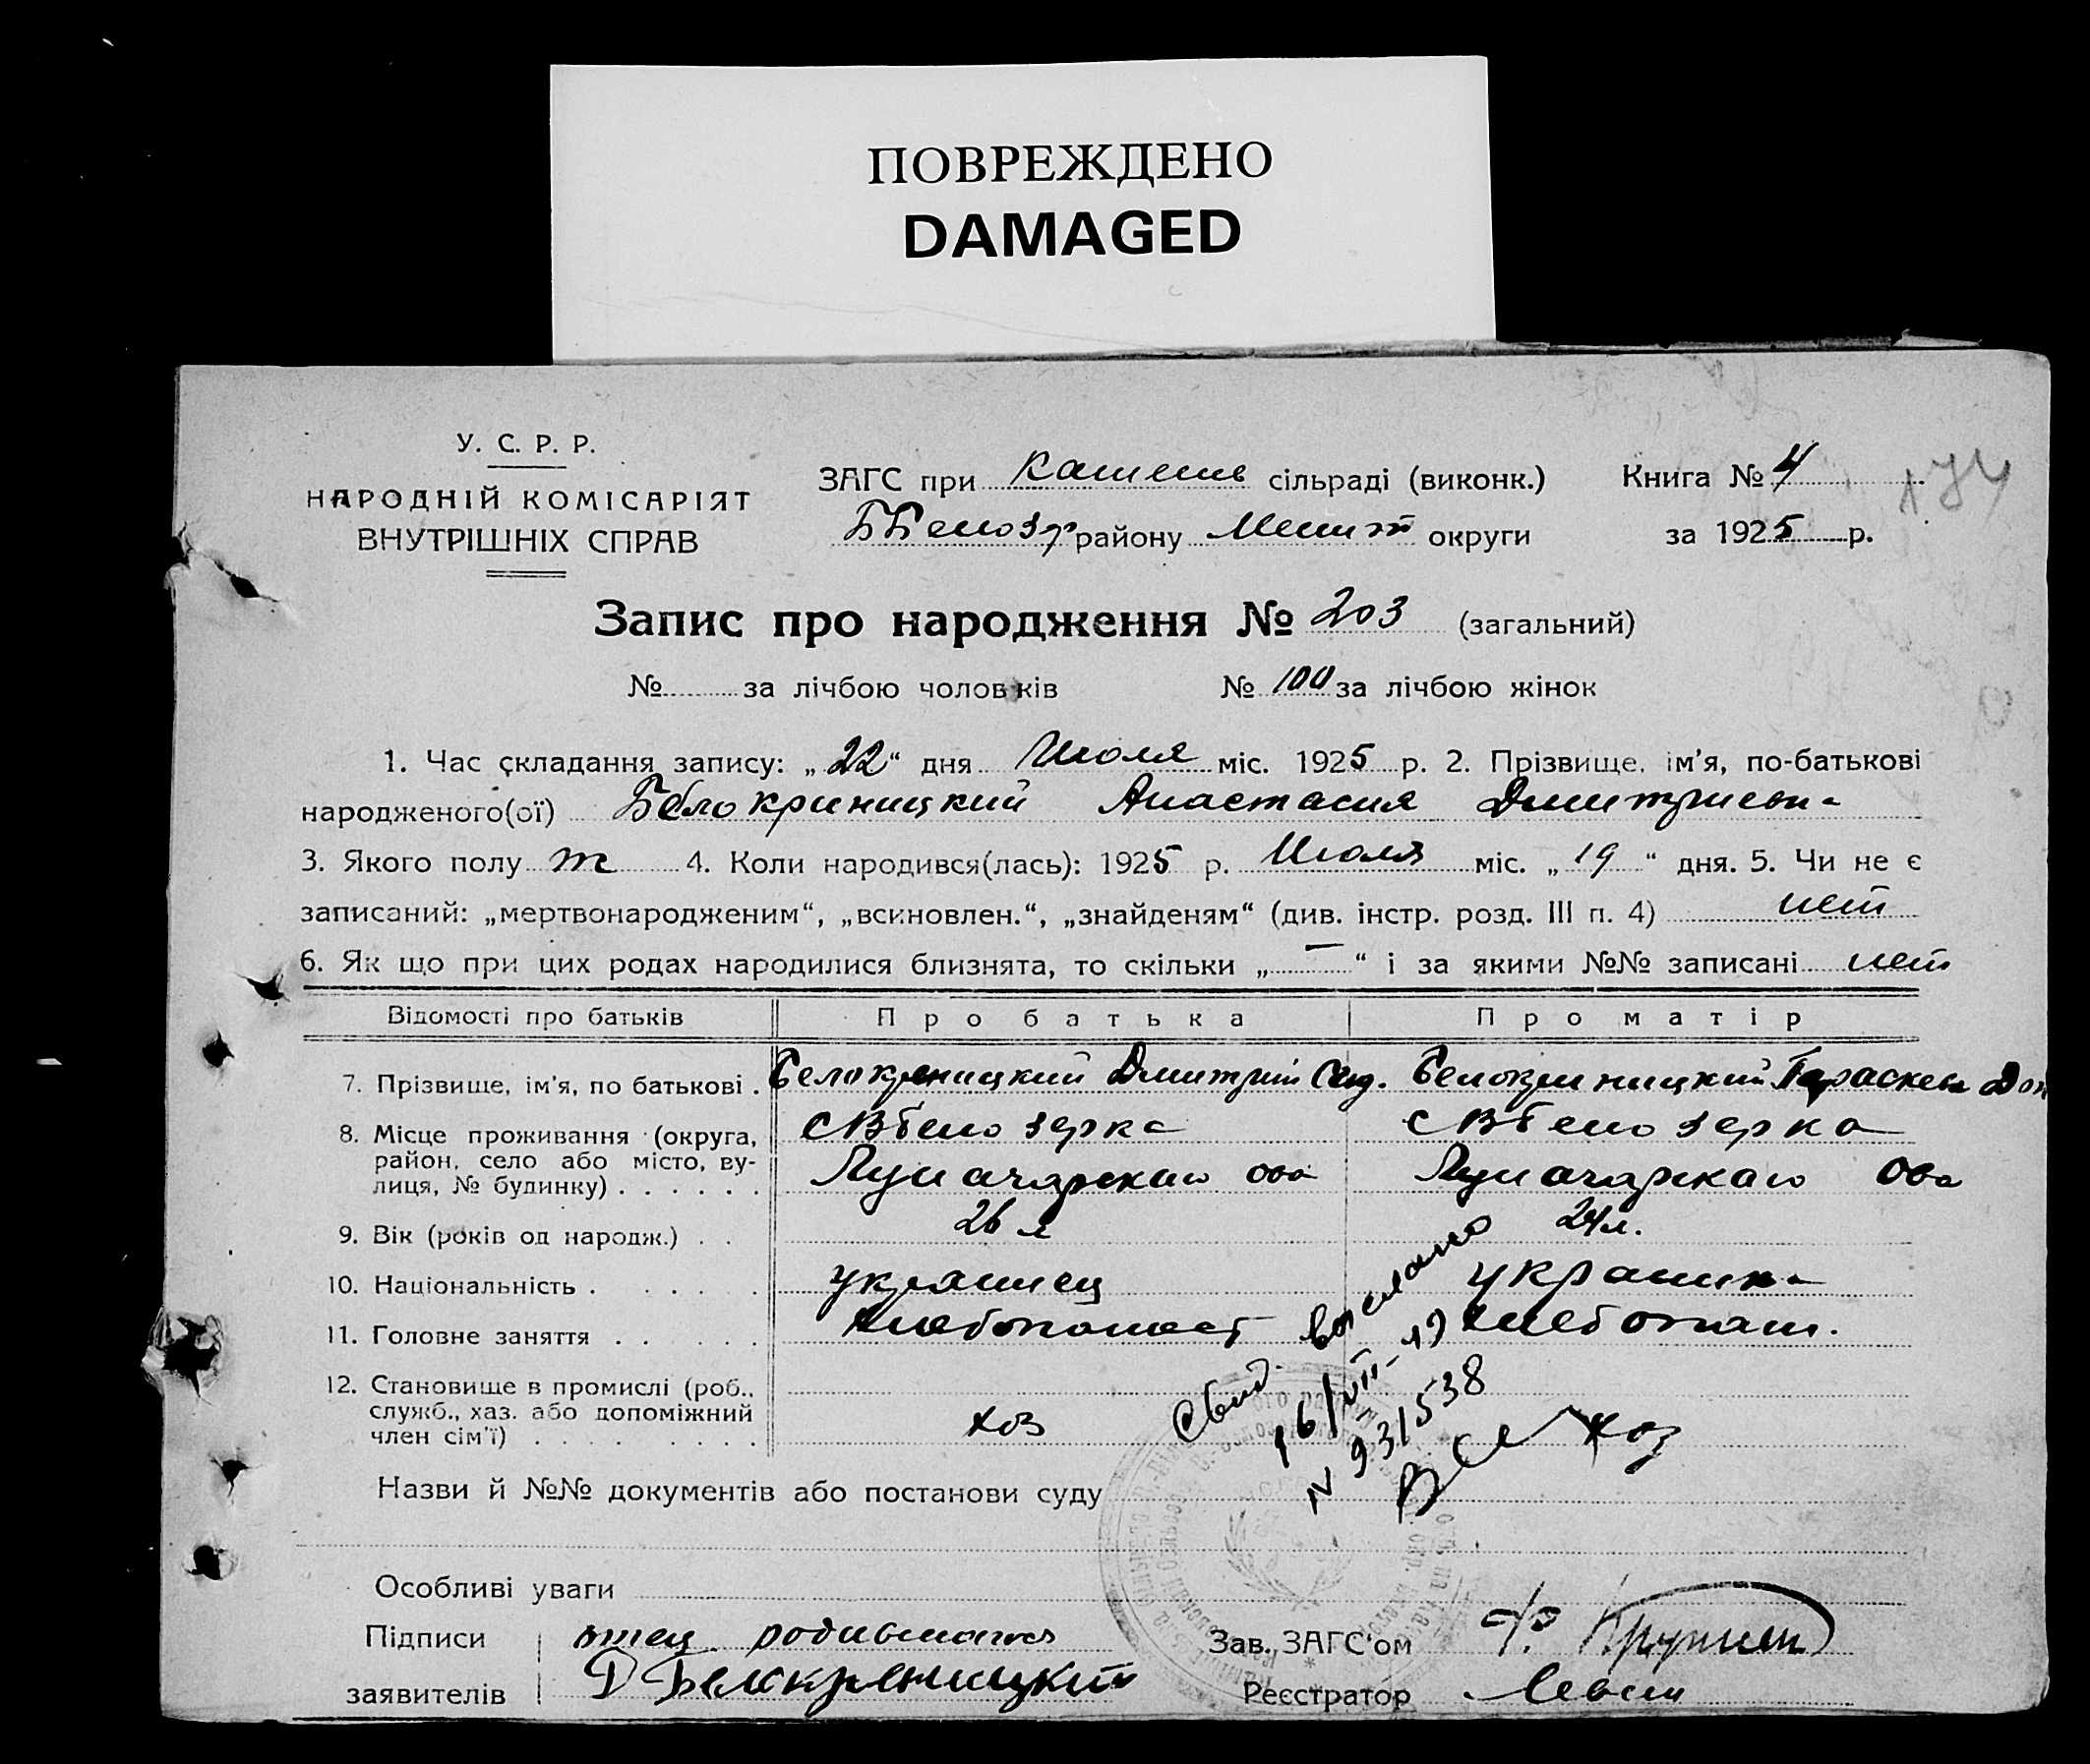 ПОВРЕЖДЕНО
DAMAGED
У. С. Р. Р.
НАРОДНІЙ КОМІСАРІЯТ
ВНУТРІШНІХ СПРАВ
ЗАГС при сільраді (виконк.)
району округи
Книга № 4
за 1925 р.
174
Запис про народження № 203 (загальний)
№ за лічбою чоловіків № 100 за лічбою жінок
1. Час складання запису: „22“ дня Июля міс. 1925 р. 2. Прізвище, ім'я, по-батькові
народженого(ої) Белокриницкий Анастасия
3. Якого полу 4. Коли народився(лась): 1925 р. Июля міс. „19“ дня. 5. Чи не є
записаний: „мертвонародженим“, „всиновлен.“, „знайденям“ (див. інстр. розд. III п. 4) нет
6. Як що при цих родах народилися близнята, то скільки „—“ і за якими №№ записані нет
Відомості про батьків Про батька Про матір
7. Прізвище, ім'я, по батькові . Белокриницкий Дмитрий Белокриницкий Параскева
8. Місце проживання (округа, район, село або місто, ву-лиця, № будинку) . . . . . .
с ВБелозерка с ВБелозерка
Луначарскаго Луначарскаго
9. Вік (років од народж.) . . 26 л 24 л.
10. Національність . . . . . украинец украинка
11. Головне заняття . . . . . хлебопашест хлебопаш.
12. Становище в промислі (роб., служб., хаз. або допоміжний член сім'ї) . . . . . . . хоз
Свид. выслано
16/VII-49
N 931538
Назви й №№ документів або постанови суду
Особливі уваги
Підписи
заявителів
отец
Д Белокриницкий
Зав. ЗАГС'ом
Реєстратор